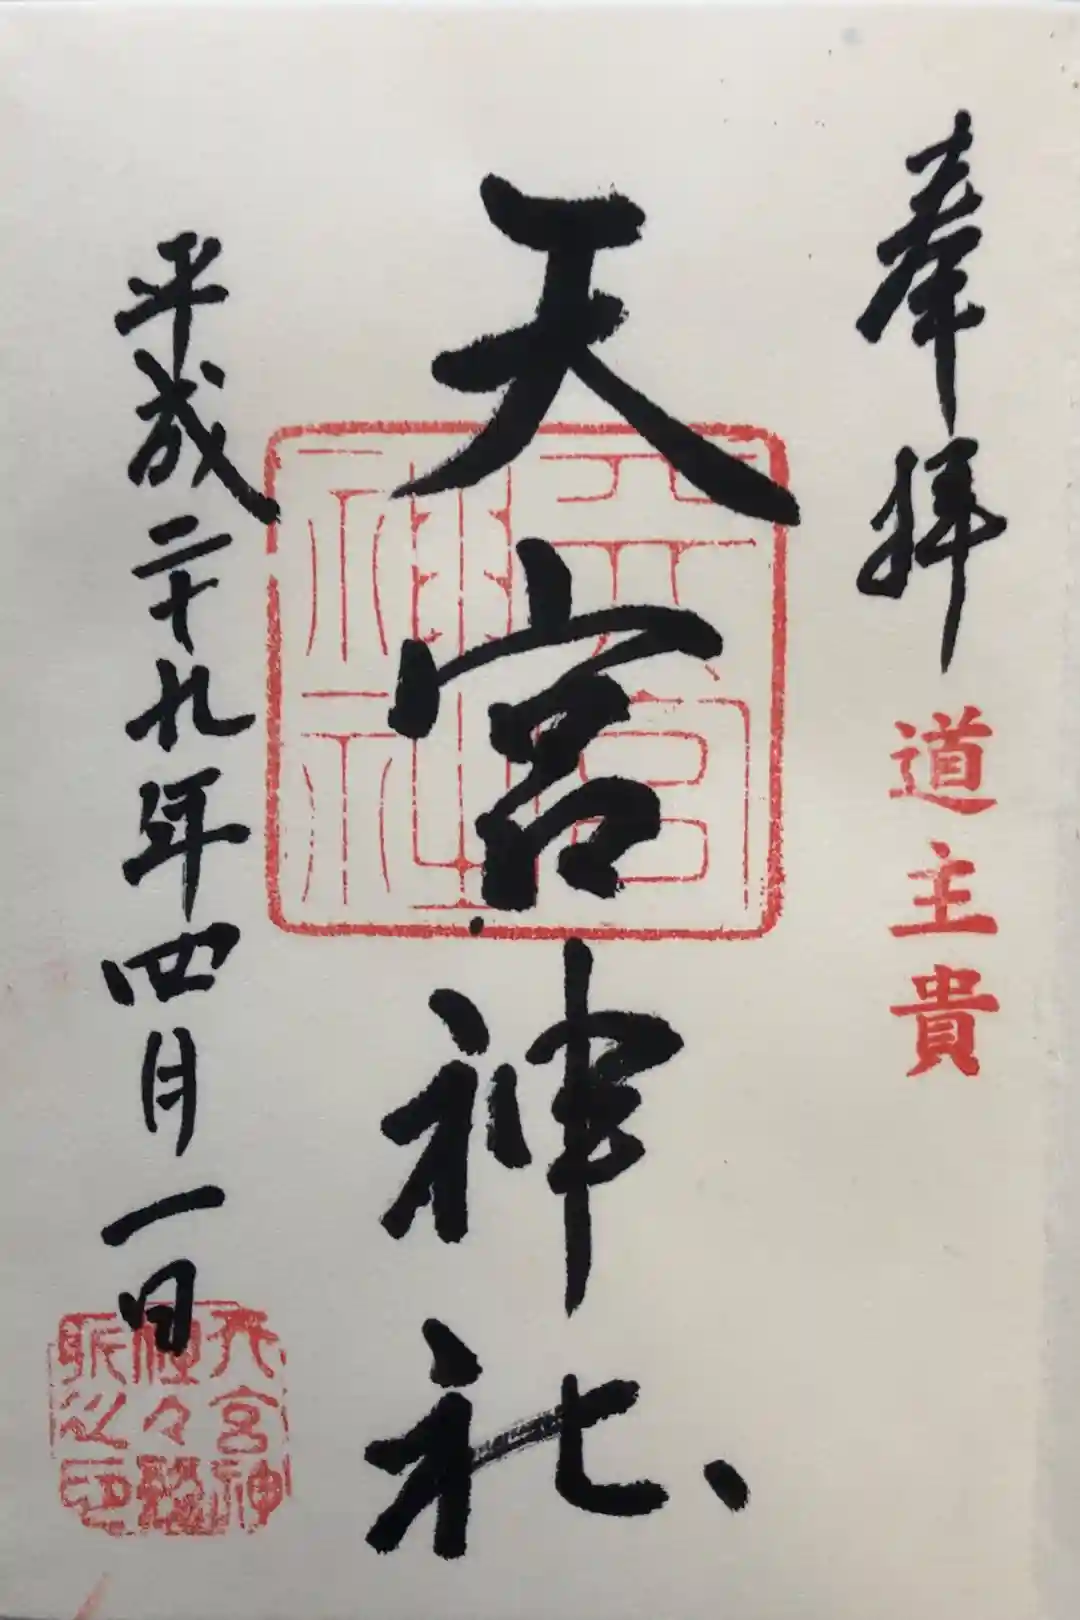 奉拝
道主貴
天宮神社
天宮神社
平成二十九年四月一日
天宮神
之印